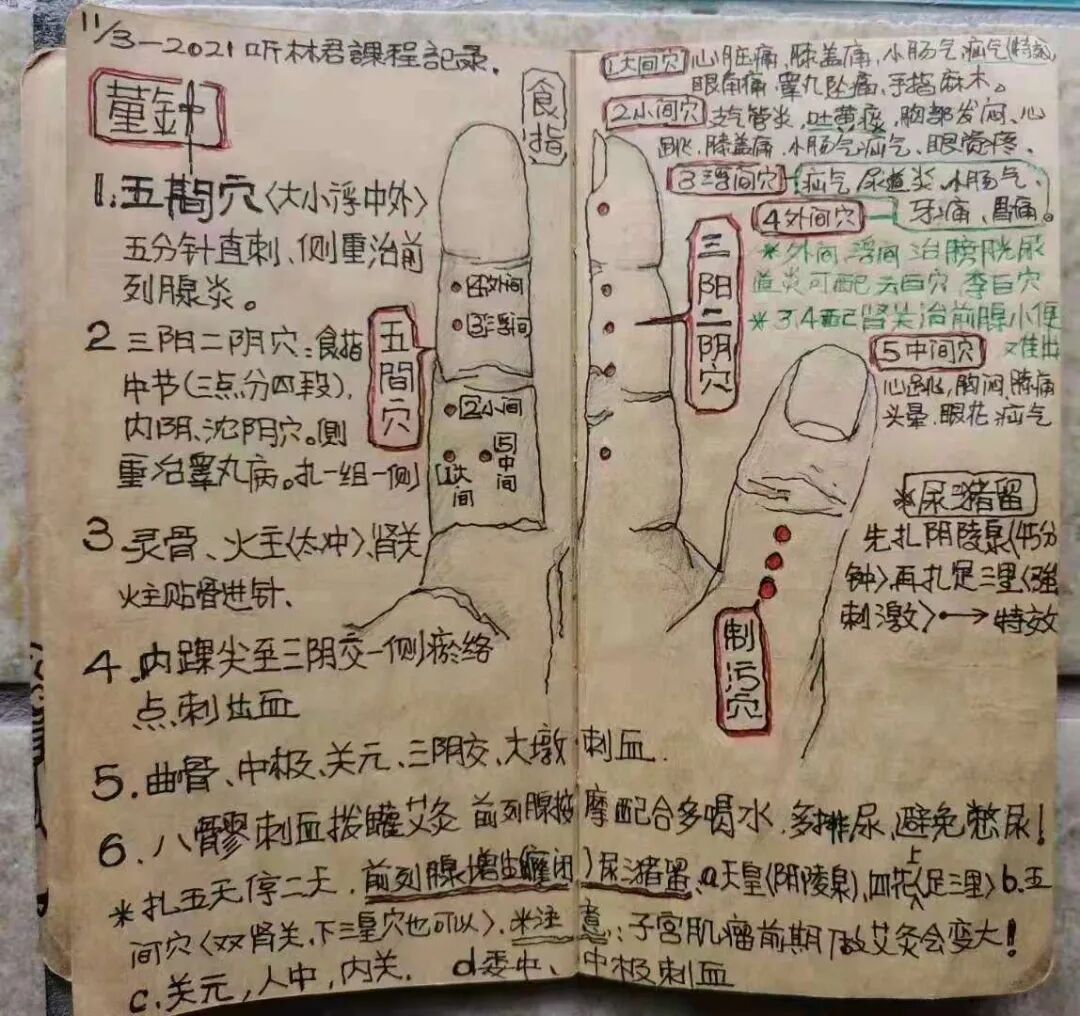 11/3-2021听林君課程記录.
董鈡
食指
1.五間穴〈大小浮中外〉
五分针直刺、侧重治前
列腺炎。
2三阳二阴穴:食指
中节(三点分四段).
内阴、沈阴穴。側
重治睾丸病。扎一组一侧
3.灵骨、火主〈太冲〉、肾关
火主贴骨进针.
4.内踝尖至三阴交一侧瘀络
点刺出血
5.曲骨、中极、关元、三阴交、大墩·刺血.
6.八髎刺血拨罐艾灸 前列腺按摩配合多喝水.多排尿,避免憋尿!
*扎五天停二天.前列腺增生癃闭)尿潴留.a天皇(阴陵泉),四花上(足三里)b.五
间穴〈双肾关、下三皇穴也可以〉.*注意:子宫肌瘤前期做艾灸会变大!
c.关元,人中,内关. d委中、中极刺血
五間穴
④外间
③浮间
②小间
①大间
⑤中间
三阳二阴穴
制污穴
1大间穴 心脏痛,膝盖痛,小肠气疝气(特效)
眼角痛.睾丸坠痛.手指麻木。
2小间穴 支气管炎,吐黄痰,胸部发闷、心
跳.膝盖痛.小肠气疝气、眼觉疼.
3浮间穴 疝气 尿道炎.小肠气、
牙痛、胃痛。
4外间穴
*外间 浮间 治膀胱尿
道炎可配 去白穴 李白穴
*3.4配肾关治前腺小便
难出
5中间穴
心跳,胸闷.膝痛
头晕.眼花.疝气
*尿潴留
先扎阴陵泉(45分
钟),再扎足三里〈强
刺激〉→特效